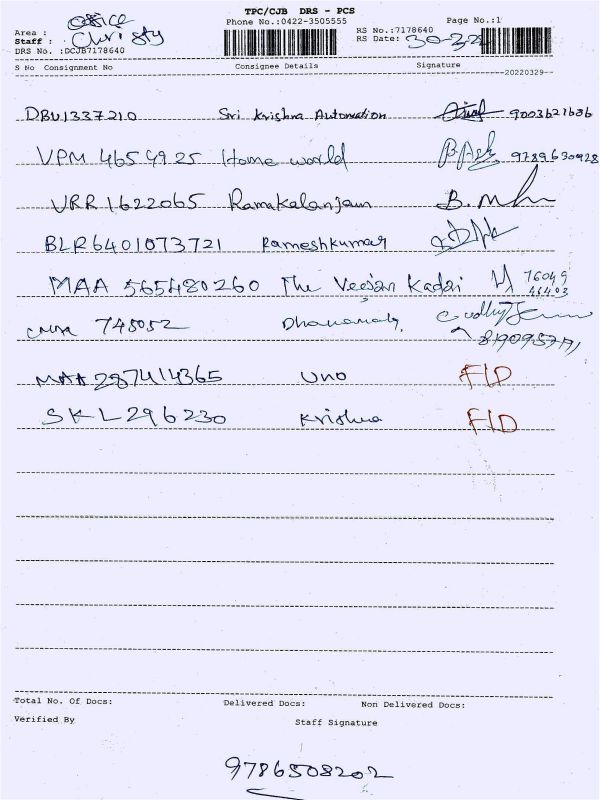 TPC/CJB DRS - PCS
Office
Phone No.:0422-3505555 Page No.:1
Area :
Staff : Christy
RS No.:7178640
RS Date: 30-3-22
DRS No. :DCJB7178640
S No Consignment No Consignee Details Signature
20220329
DBU1337210 Sri Krishna Automation 9003621636
VPM 4654925 Home world 9789630928
VRR 1622065 Ramakalanjam B.
BLR6401073721 Rameshkumar
MAA 565480260 The Veejan Kadai 76049
46403
745052
MAA 287414365 Uno F/D
SKL296230 Krishna F/D
Total No. Of Docs: Delivered Docs: Non Delivered Docs:
Verified By Staff Signature
9786508202